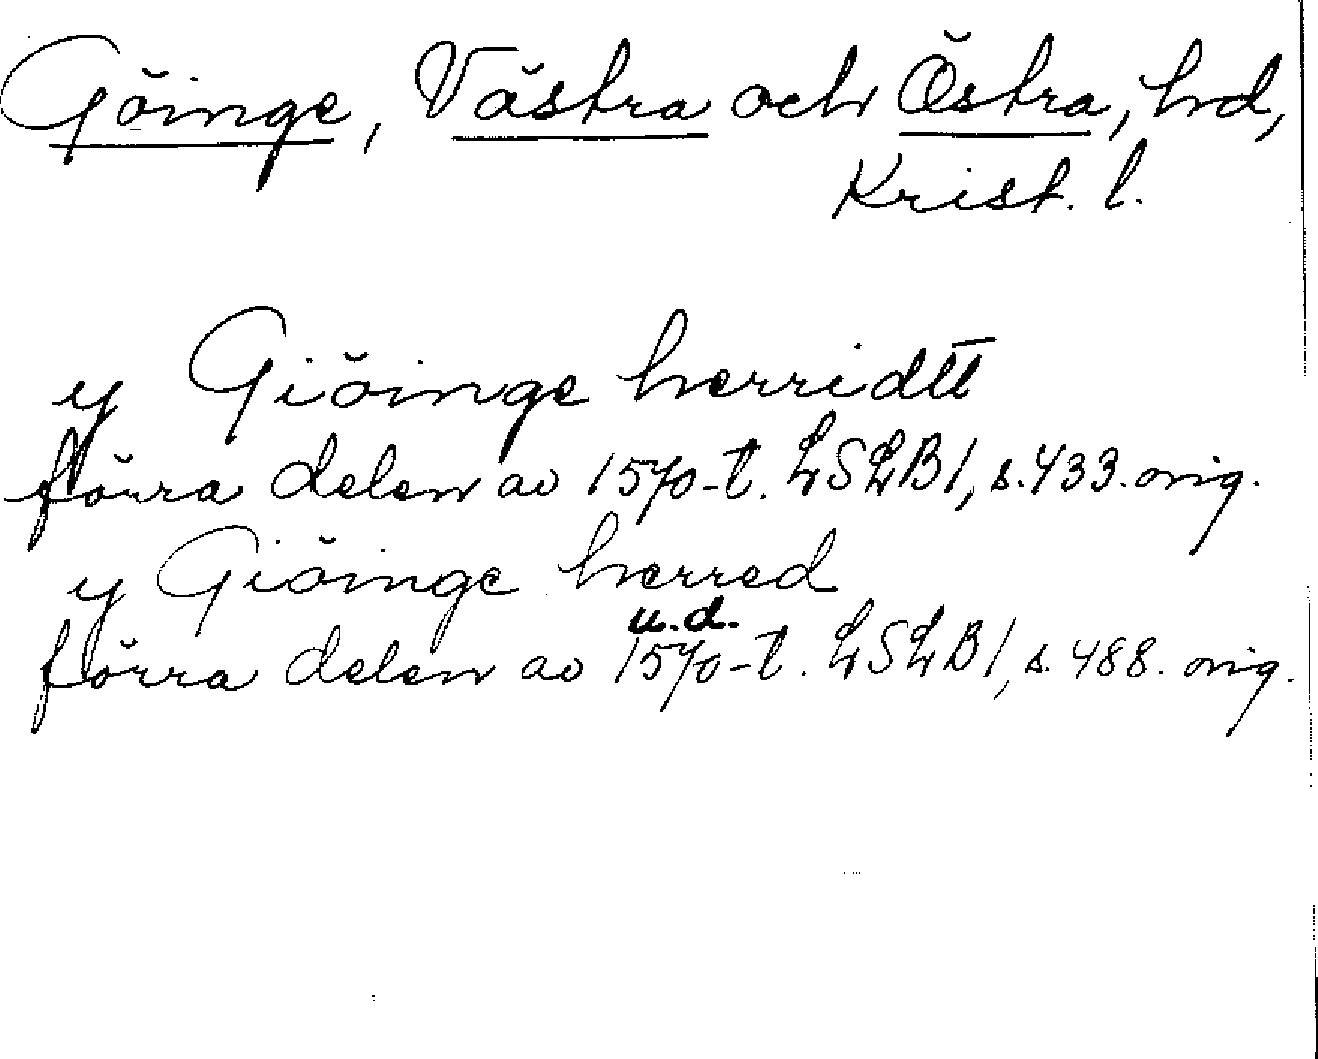 Göinge, Västra och Östra, hd,
Krist. l.
y Giöinge herridtt
förra delen av 1570-t. LSLB1, s. 433. orig.
y Giöinge herred
u.d.
förra delen av 1570-t. LSLB1, s. 488. orig.